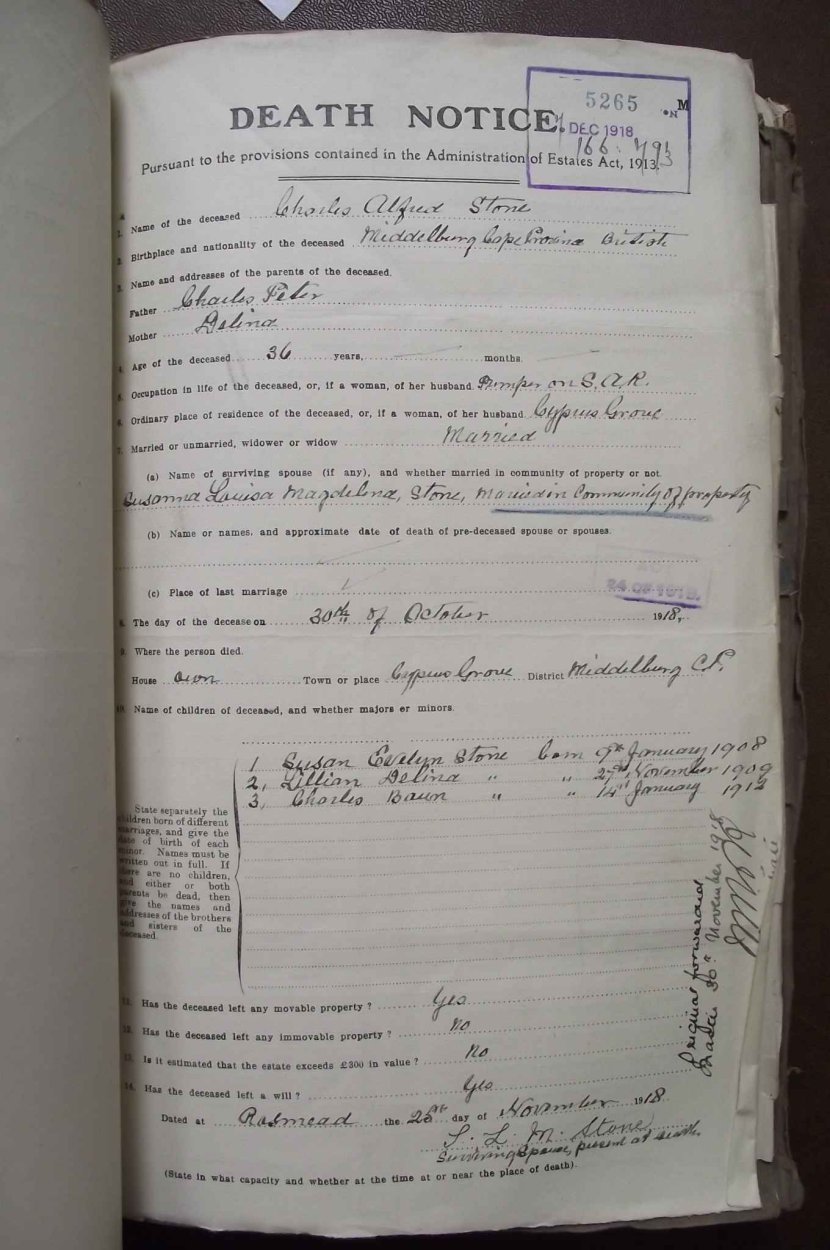 5265
M
DEATH NOTICE.
DEC 1918
Pursuant to the provisions contained in the Administration of Estates Act, 1913.
1. Name of the deceased Charles Alfred Stone
2. Birthplace and nationality of the deceased Middelburg Cape Province British
3. Name and addresses of the parents of the deceased.
Father Charles Peter
Mother Delina
4. Age of the deceased 36 years, months.
5. Occupation in life of the deceased, or, if a woman, of her husband. Pumper on S.A.R.
6. Ordinary place of residence of the deceased, or, if a woman, of her husband. Cyprus Grove
7. Married or unmarried, widower or widow Married
(a) Name of surviving spouse (if any), and whether married in community of property or not.
Susanna Louisa Magdelena, Stone, Married in Community of property
(b) Name or names, and approximate date of death of pre-deceased spouse or spouses.
(c) Place of last marriage
8. The day of the decease on 30th of October 1918.
9. Where the person died.
House own Town or place Cyprus Grove District Middelburg C.P.
10. Name of children of deceased, and whether majors or minors.
1 Susan Evelyn Stone born 9th January 1908
2, Lillian Delina " " November 1909
3, Charles " " 14th January
State separately the
children born of different
marriages, and give the
date of birth of each
minor. Names must be
written out in full. If
there are no children,
and either or both
parents be dead, then
give the names and
addresses of the brothers
and sisters of the
deceased.
11. Has the deceased left any movable property? Yes
12. Has the deceased left any immovable property? No
13. Is it estimated that the estate exceeds £300 in value? No
14. Has the deceased left a will? Yes
Dated at Rosmead the day of November 1918
S. L. M. Stone
Surviving Spouse, present at death.
(State in what capacity and whether at the time at or near the place of death).
Original forwarded
Master November 1918